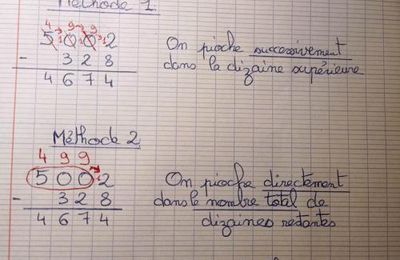 Méthode 1
4 9 9
5 0 0 2
- 3 2 8
4 6 7 4
On pioche successivement
dans la dizaine supérieure
Méthode 2
4 9 9
5 0 0 2
- 3 2 8
4 6 7 4
On pioche directement
dans le nombre total de
dizaines restantes